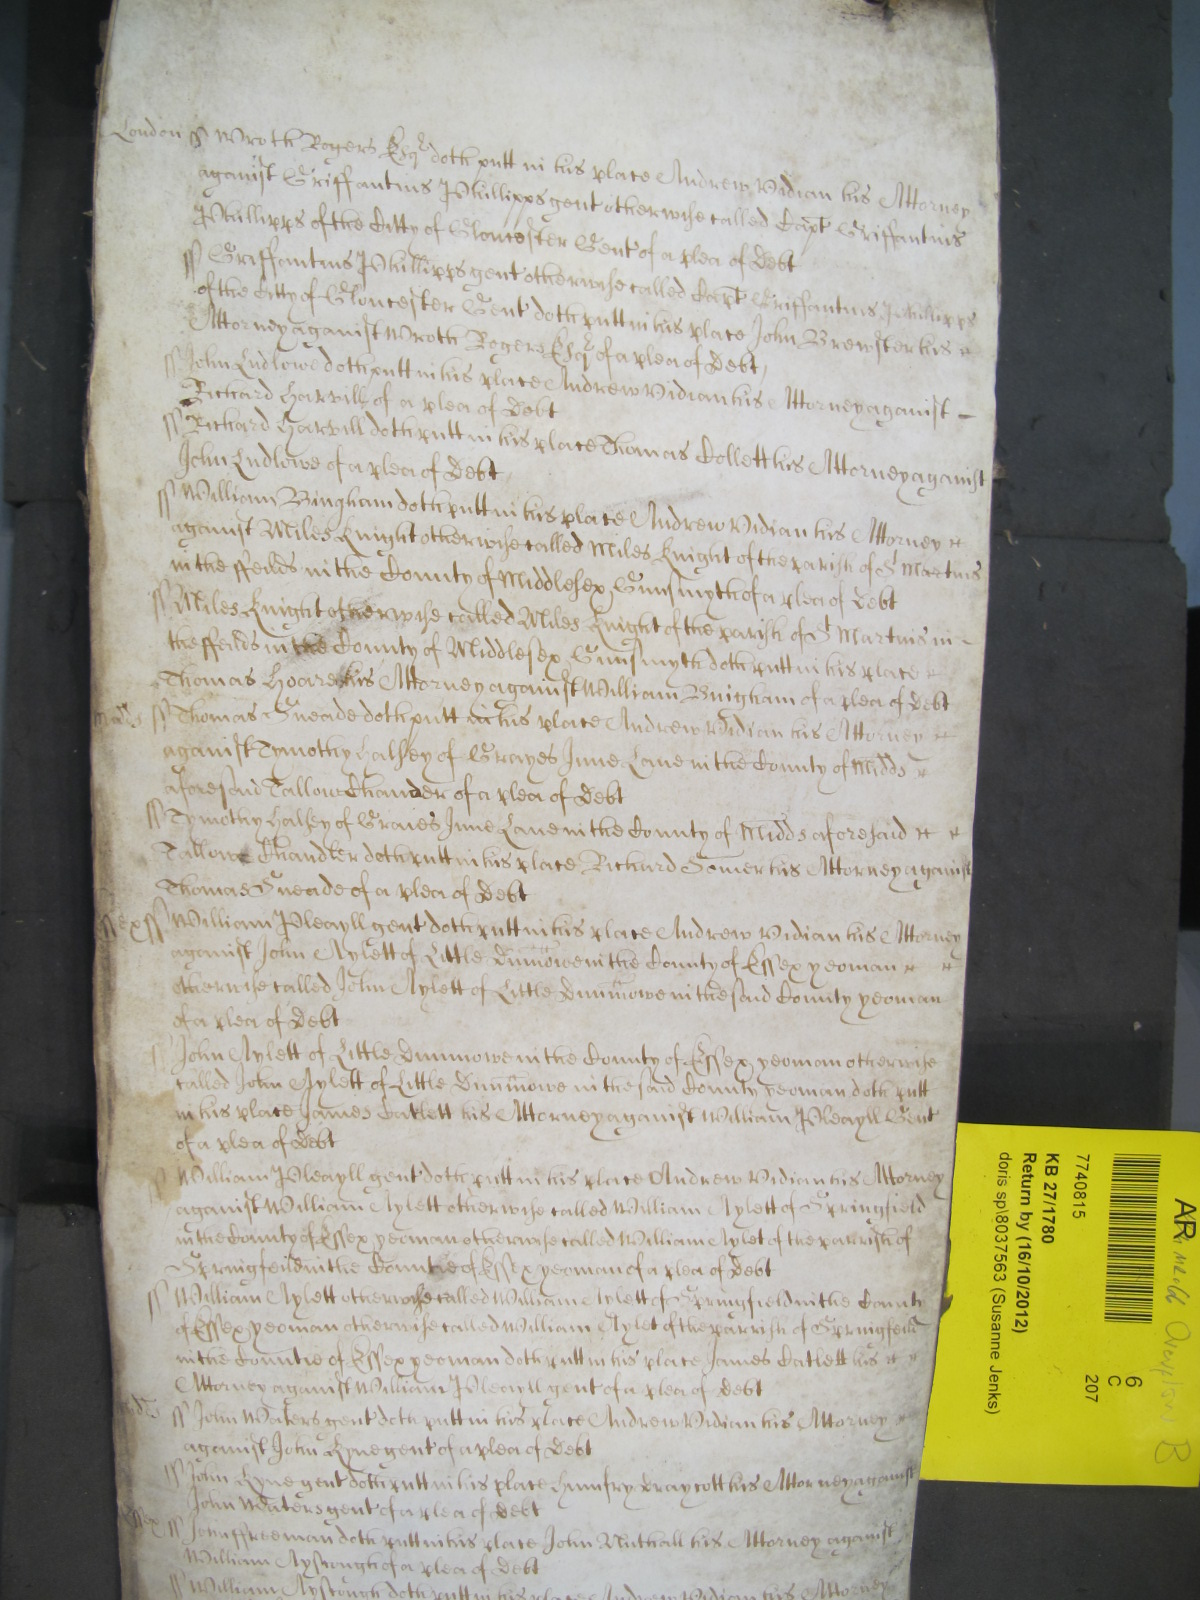 London ss Wroth Rogers Esqr doth putt in his place Andrew Vidian his Attorney
against Griffantius Phillipps gent otherwise called Capt Griffantius
Phillipps of the Citty of Gloucester Gent of a plea of Debt
ss Griffantius Phillipps gent otherwise called Capt Griffantius Phillipps
of the Citty of Gloucester Gent doth putt in his place John Brewster his
Attorney against Wroth Rogers Esqr of a plea of Debt
ss John Ludlowe doth putt in his place Andrew Vidian his Attorney against
Richard Harvill of a plea of Debt
ss Richard Harvill doth putt in his place Thomas Collett his Attorney against
John Ludlowe of a plea of Debt
ss William Bingham doth putt in his place Andrew Vidian his Attorney
against Miles Knight otherwise called Miles Knight of the parish of St Martins
in the ffeilds in the County of Middlesex Gunsmyth of a plea of Debt
ss Miles Knight otherwise called Miles Knight of the parish of St Martins in
the ffeilds in the County of Middlesex Gunsmyth doth putt in his place
Thomas Hoare his Attorney against William Bingham of a plea of Debt
Midds ss Thomas Sneade doth putt in his place Andrew Vidian his Attorney
against Tymothy Halsey of Grayes Inne Lane in the County of Midds
aforesaid Tallow Chandler of a plea of Debt
ss Tymothy Halsey of Graies Inne Lane in the County of Midds aforesaid
Tallowe Chandler doth putt in his place Richard Somer his Attorney against
Thomas Sneade of a plea of Debt
Essex ss William Pleayll gent doth putt in his place Andrew Vidian his Attorney
against John Aylett of Little Dunmowe in the County of Essex yeoman
otherwise called John Aylett of Little Dunmowe in the said County yeoman
of a plea of Debt
ss John Aylett of Little Dunmowe in the County of Essex yeoman otherwise
called John Aylett of Little Dunmowe in the said County yeoman doth putt
in his place James Catlett his Attorney against William Pleayll Gent
of a plea of Debt
ss William Pleayll gent doth putt in his place Andrew Vidian his Attorney
against William Aylett otherwise called William Aylett of Springfield
in the County of Essex yeoman otherwise called William Aylet of the parrish of
Springfeild in the Countie of Essex yeoman of a plea of Debt
ss William Aylett otherwise called William Aylett of Springfield in the County
of Essex yeoman otherwise called William Aylet of the parrish of Springfeild
in the Countie of Essex yeoman doth putt in his place James Catlett his
Attorney against William Pleayll gent of a plea of Debt
ss John Waters gent doth putt in his place Andrew Vidian his Attorney
against John Kyne gent of a plea of Debt
ss John Kyne gent doth putt in his place Humfry Draycott his Attorney against
John Waters gent of a plea of Debt
Essex ss John ffreeman doth putt in his place John Nuthall his Attorney against
William Ayscough of a plea of Debt
ss William Ayscough doth putt in his place Andrew Vidian his Attorney
AR
6
C
207
7740815
KB 27/1780
Return by (16/10/2012)
doris sp\8037563 (Susanne Jenks)